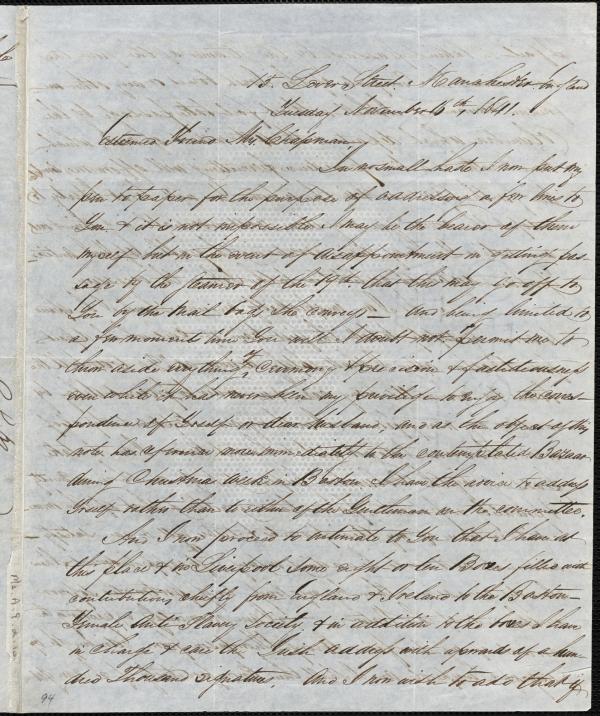 15. Lever Street. Manchester England
Tuesday November 16th, 1841.
Esteemed Friend Mrs Chapman,
In no small haste I now put my
pen to paper for the purpose of addressing a few lines to
You & it is not impossible I may be the bearer of them
myself but in the event of disappointment in getting pas-
sage by the steamer of the 19th that this may go off to
You by the Mail bags she conveys — and being limited to
a few moments time You will I doubt not permit me to
throw aside everything of ceremony & precision & fastidiousness
even while it has never been my privilege to enjoy the corres-
pondence of Yrself or dear husband, and as the object of this
note has a reference more immediately to the contemplated Bazaar
during Christmas week in Boston I have the desire to address
Yrself rather than to either of the Gentlemen on the committee.
And I now proceed to intimate to You that I have at
this place & in Liverpool some eight or ten Boxes filled with
contributions chiefly from England & Ireland to the Boston
Female Anti Slavery Society & in addition to the boxes I have
in charge & care the Irish address with upwards of a hun
dred Thousand signatures. And I now wish to add that if
94